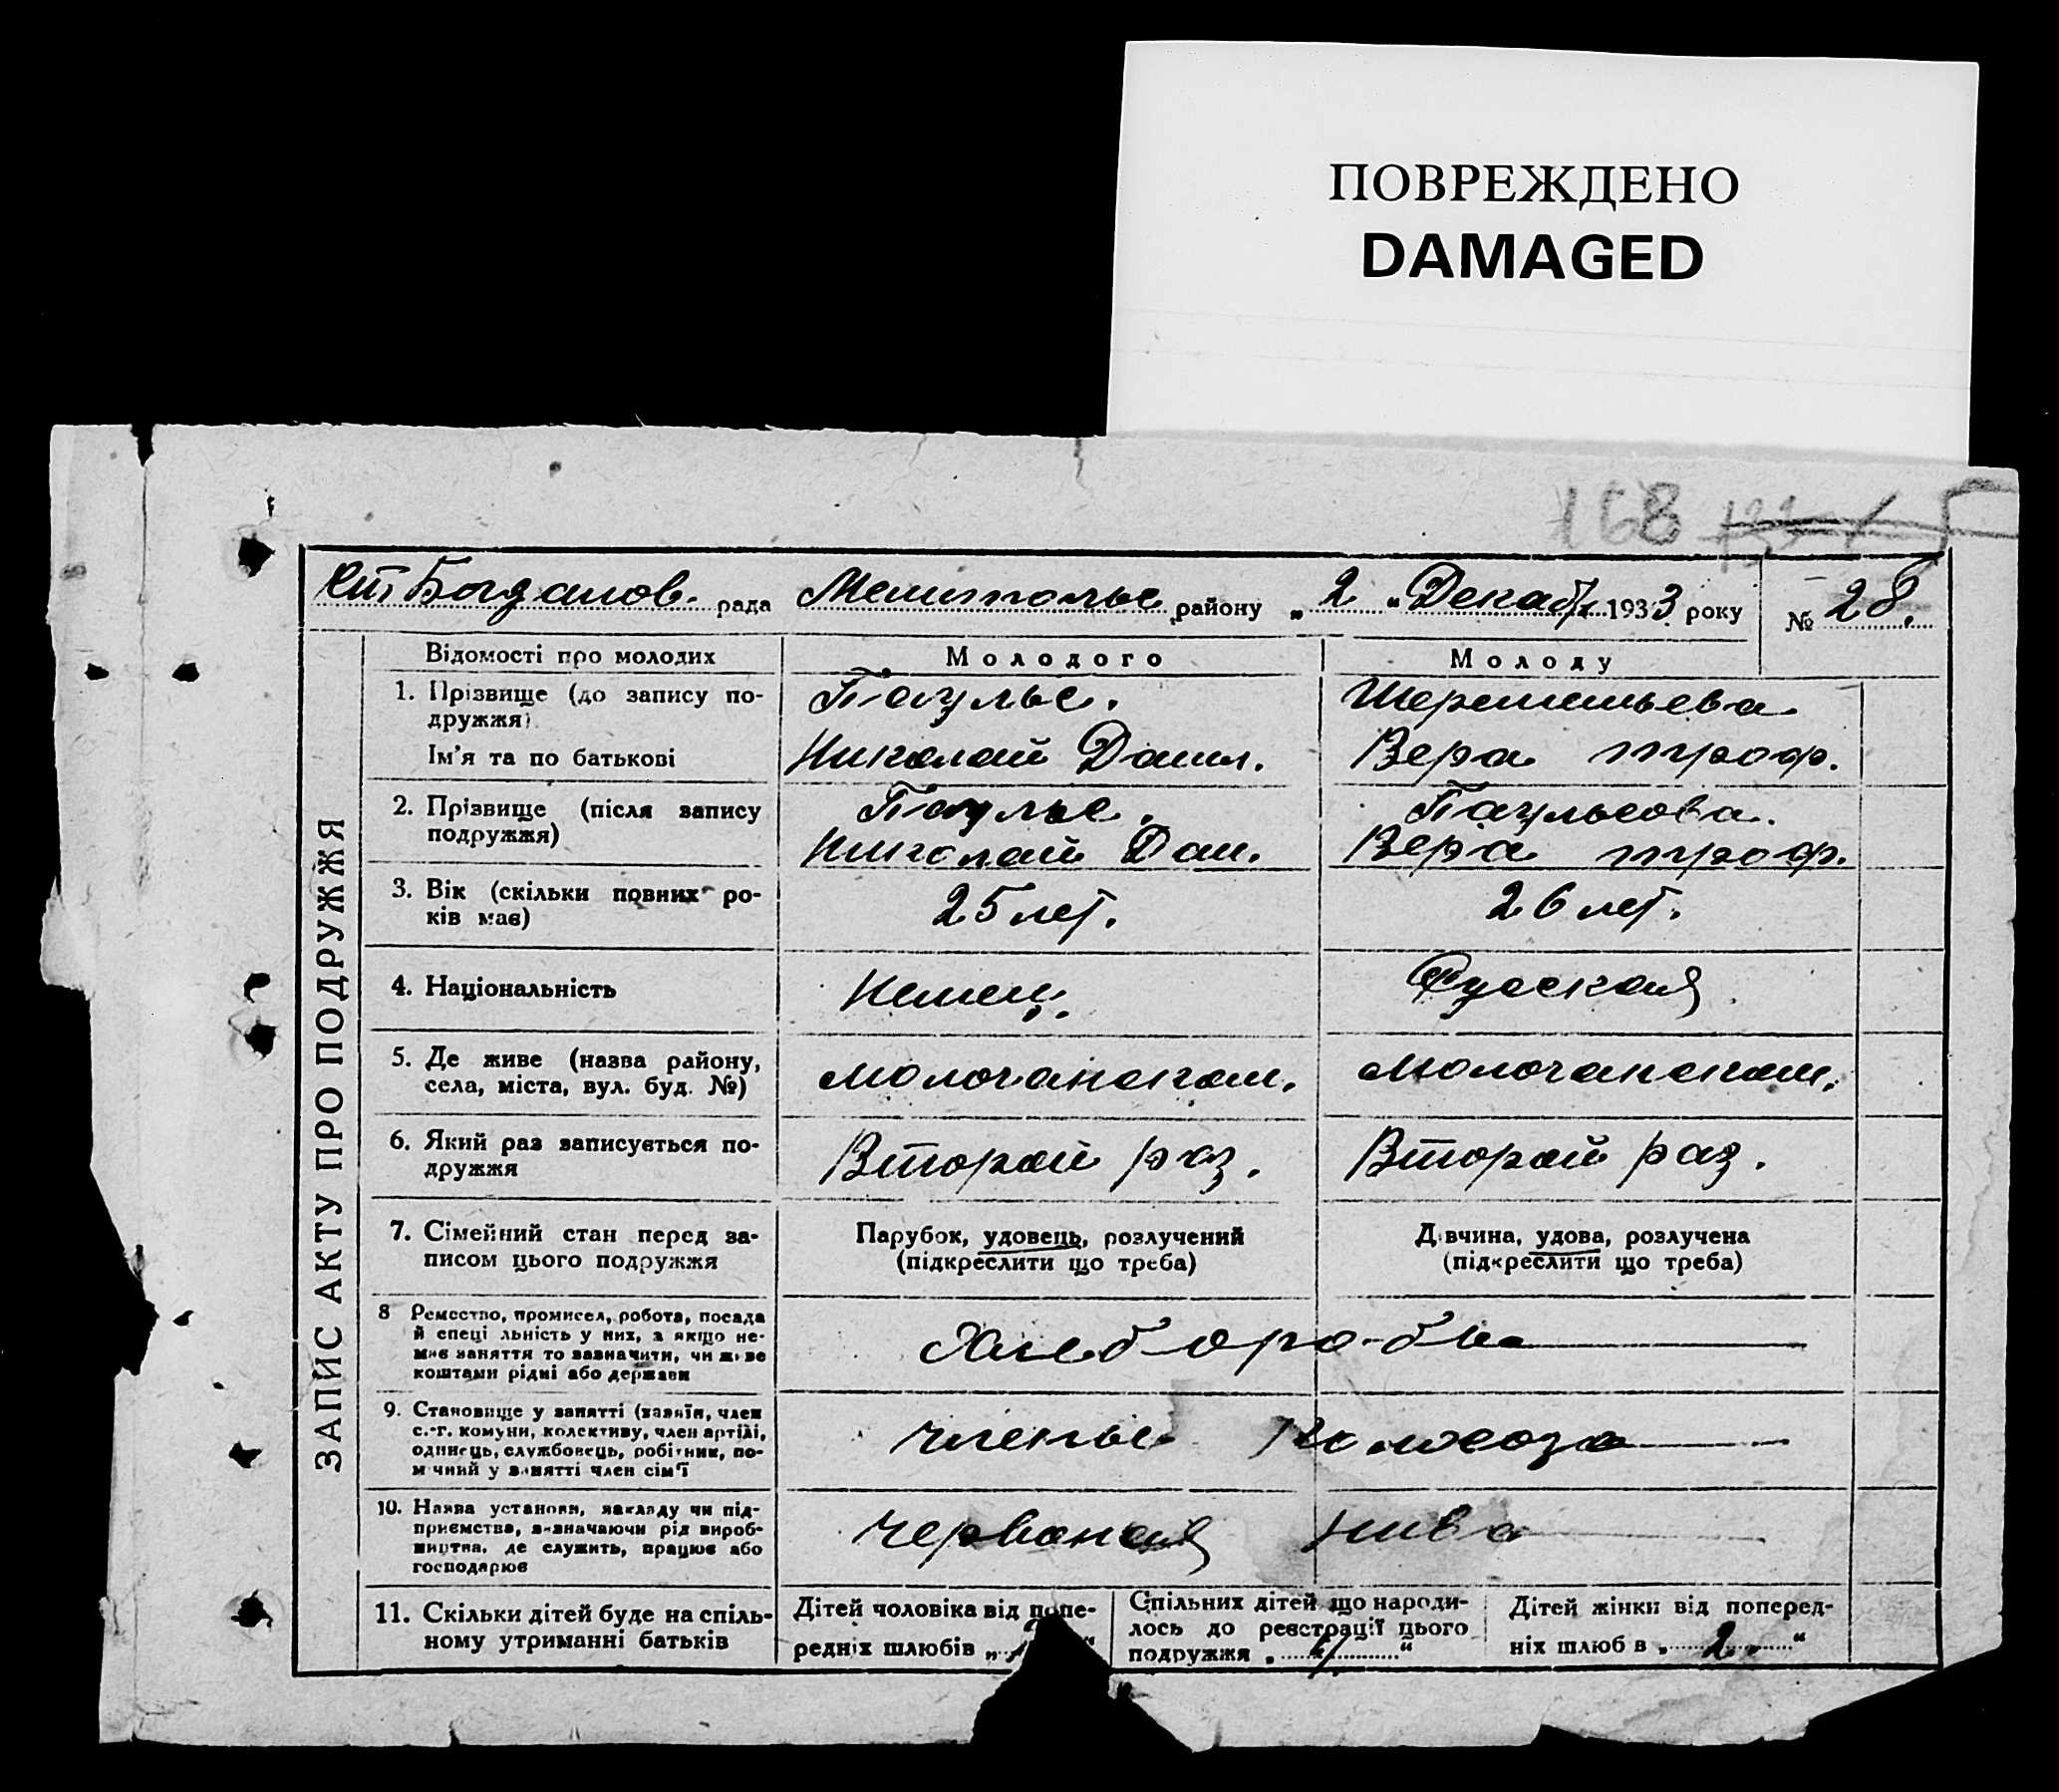 ПОВРЕЖДЕНО
DAMAGED
168
Ст, Богданов. рада Мелитопольс району „ 2 “ Декаб 1933 року № 28.
ЗАПИС АКТУ ПРО ПОДРУЖЖЯ
Відомості про молодих Молодого Молоду
1. Прізвище (до запису по-
дружжя) Паульс. Шереметьева
Ім'я та по батькові Николай Данил. Вера троф.
2. Прізвище (після запису
подружжя) Паульс. Паульсова.
Николай Дан. Вера троф.
3. Вік (скільки повних ро-
ків має) 25 лет. 26 лет.
4. Національність Немец. Русская
5. Де живе (назва району,
села, міста, вул. буд. №) Молочанскаш. Молочанскаш.
6. Який раз записується по-
дружжя Второй раз. Второй раз.
7. Сімейний стан перед за-
писом цього подружжя Парубок, удовець, розлучений
(підкреслити що треба) Дівчина, удова, розлучена
(підкреслити що треба)
8 Ремество, промисел, робота, посада
й спеціальність у них, а якщо не-
має заняття то зазначити, чи живе
коштами рідні або держави Хлеборобы
9. Становище у занятті (хазяїн, член
с.-г. комуни, колективу, член артілі,
одинець, службовець, робітник, по-
мічний у занятті член сім'ї члены Колхоза
10. Назва установи, закладу чи під-
приємства, визначаючи рід вироб-
ництва, де служить, працює або
господарює Червоная нива
11. Скільки дітей буде на спіль-
ному утриманні батьків Дітей чоловіка від попе-
редніх шлюбів „ “ Спільних дітей що народи-
лось до реєстрації цього
подружжя „ “ Дітей жінки від поперед-
ніх шлюбів „ 2. “